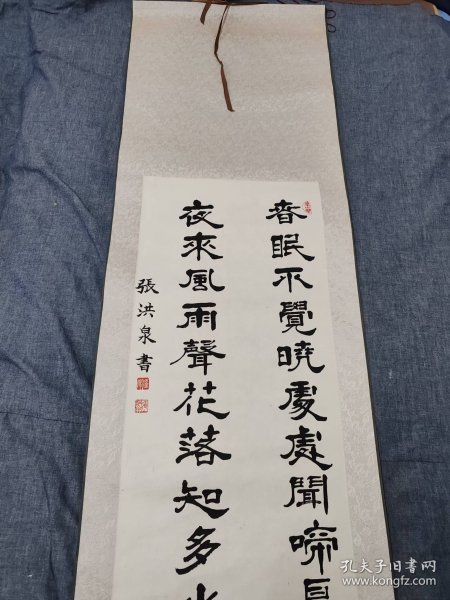 春眠不覺曉處處聞啼鳥
夜來風雨聲花落知多少
張洪泉書
孔夫子旧书网
www.kongfz.com